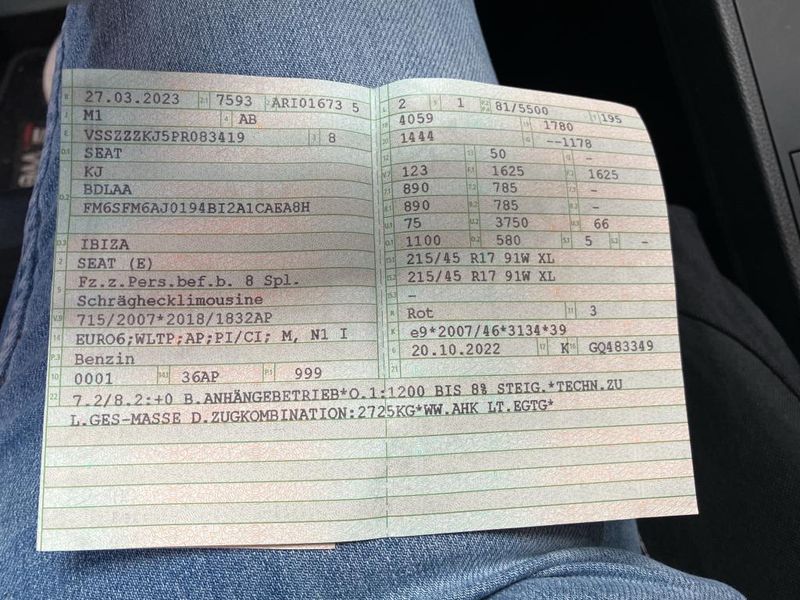 27.03.2023 7593 ARI01673 5
M1 AB
VSSZZZKJ5PR083419 8
SEAT
KJ
BDLAA
FM6SFM6AJ0194BI2A1CAEA8H
IBIZA
SEAT (E)
Fz.z.Pers.bef.b. 8 Spl.
Schräghecklimousine
715/2007*2018/1832AP
EURO6;WLTP;AP;PI/CI; M, N1 I
Benzin
0001 36AP 999
2 1 81/5500 195
4059 1780
1444 --1178
50 -
123 1625 1625
890 785 -
890 785 -
75 3750 66
1100 580 5 -
215/45 R17 91W XL
215/45 R17 91W XL
-
Rot 3
e9*2007/46*3134*39
20.10.2022 K GQ483349
7.2/8.2:+0 B.ANHÄNGEBETRIEB*O.1:1200 BIS 8% STEIG.*TECHN.ZU
L.GES-MASSE D.ZUGKOMBINATION:2725KG*WW.AHK LT.EGTG*